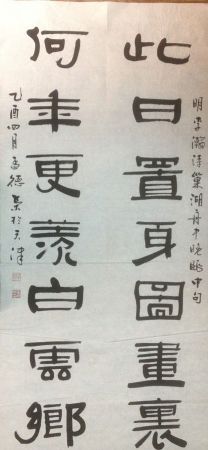 明李瀚詩巢湖舟中晚眺中句
此日置身圖畫裏
何年更羨白雲鄉
乙酉四月孟德景於天津